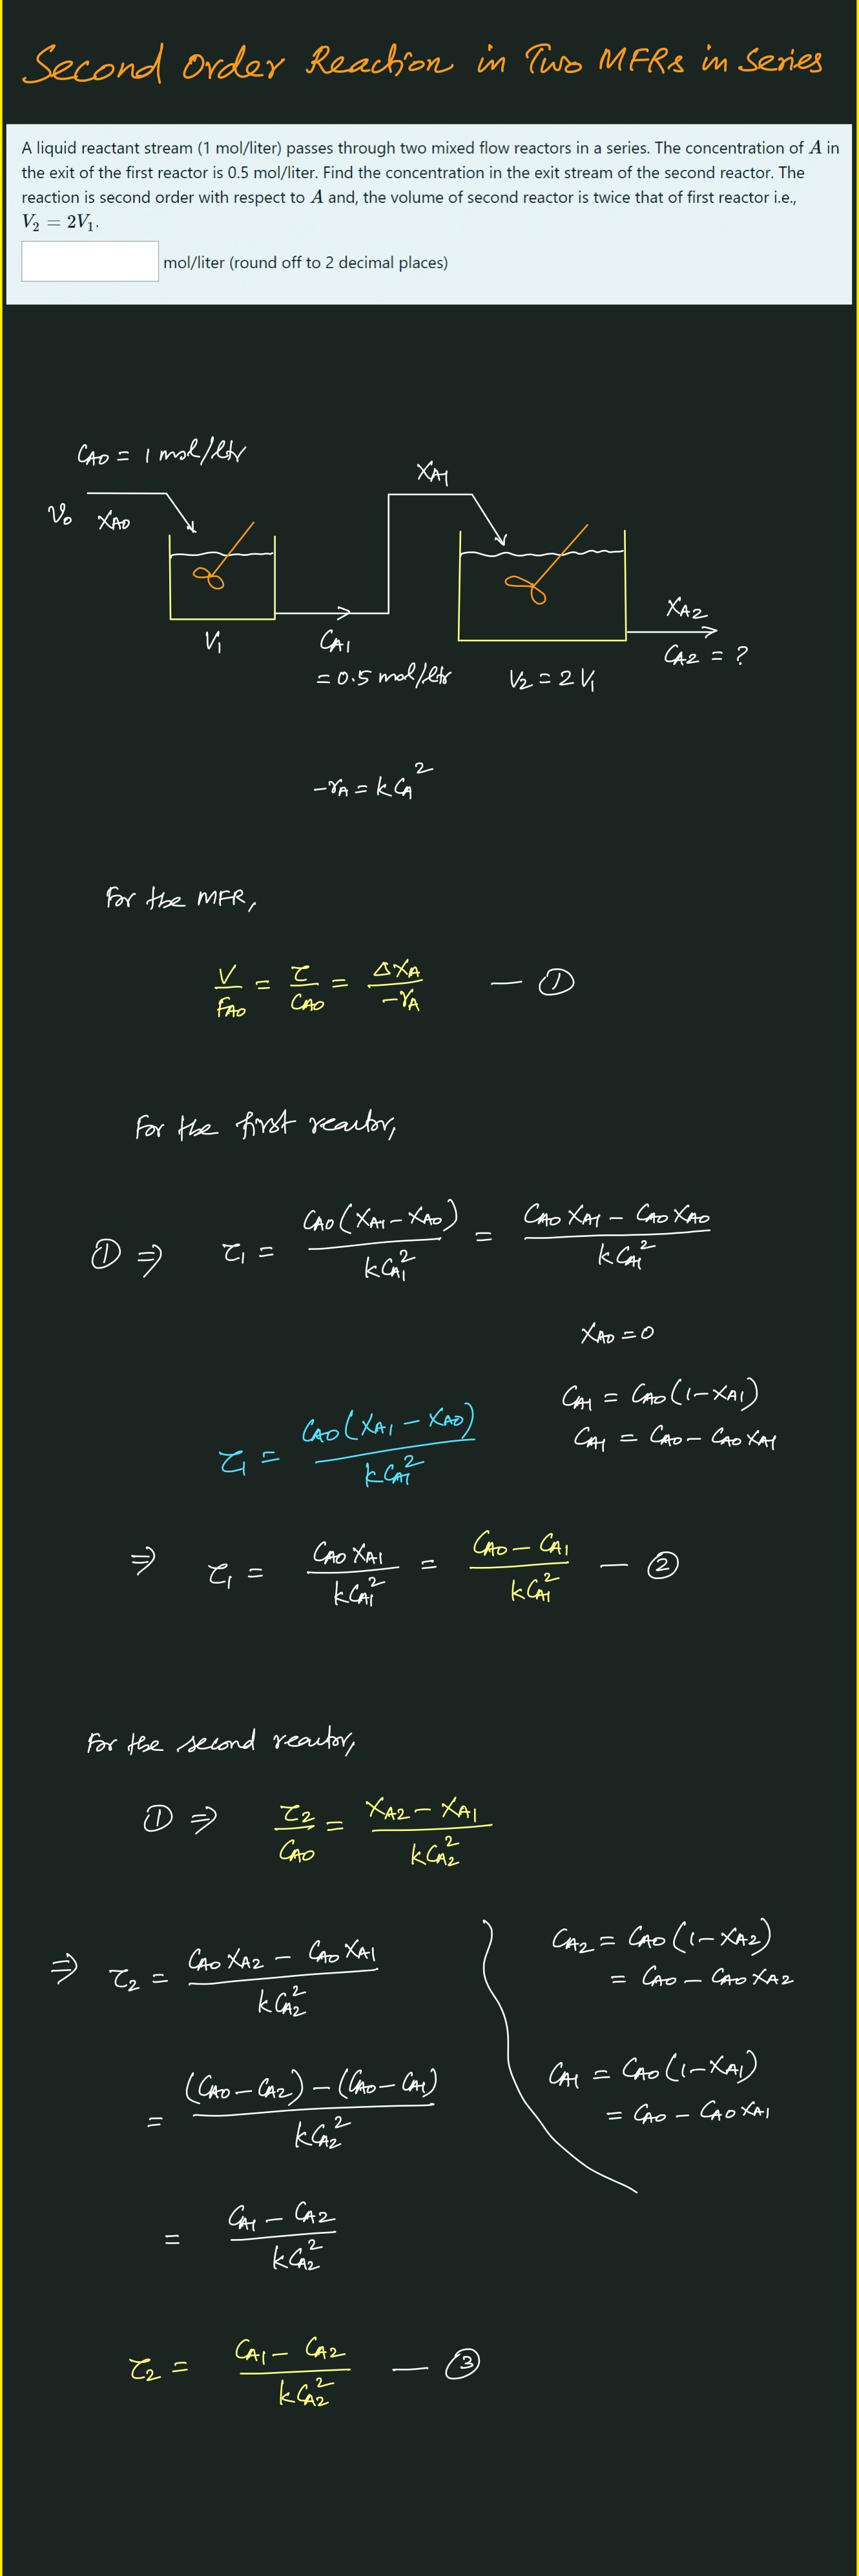 Second Order Reaction in Two MFRs in Series
A liquid reactant stream (1 mol/liter) passes through two mixed flow reactors in a series. The concentration of A in
the exit of the first reactor is 0.5 mol/liter. Find the concentration in the exit stream of the second reactor. The
reaction is second order with respect to A and, the volume of second reactor is twice that of first reactor i.e.,
V₂ = 2V₁.
mol/liter (round off to 2 decimal places)
C_A0 = 1 mol/ltr
v₀ X_A0
X_A1
V₁
C_A1
= 0.5 mol/ltr
V₂ = 2V₁
X_A2
C_A2 = ?
-r_A = k C_A²
For the MFR,
V/F_A0 = τ/C_A0 = ΔX_A/-r_A — ①
For the first reactor,
① ⇒ τ₁ = C_A0(X_A1 - X_A0)/kC_A1² = C_A0 X_A1 - C_A0 X_A0/kC_A1²
X_A0 = 0
C_A1 = C_A0(1-X_A1)
C_A1 = C_A0 - C_A0 X_A1
τ₁ = C_A0(X_A1 - X_A0)/kC_A1²
⇒ τ₁ = C_A0 X_A1/kC_A1² = C_A0 - C_A1/kC_A1² — ②
For the second reactor,
① ⇒ τ₂/C_A0 = X_A2 - X_A1/kC_A2²
⇒ τ₂ = C_A0 X_A2 - C_A0 X_A1/kC_A2²
= (C_A0 - C_A2) - (C_A0 - C_A1)/kC_A2²
= C_A1 - C_A2/kC_A2²
C_A2 = C_A0(1-X_A2)
= C_A0 - C_A0 X_A2
C_A1 = C_A0(1-X_A1)
= C_A0 - C_A0 X_A1
τ₂ = C_A1 - C_A2/kC_A2² — ③